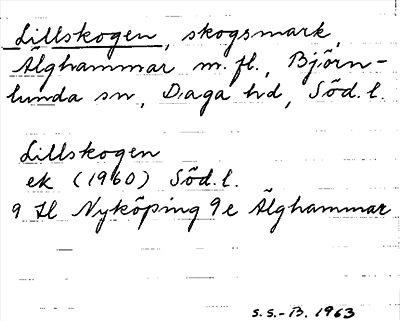 Lillskogen, skogsmark,
Älghammar m. fl., Björn-
lunda sn, Daga hd, Söd. l.
Lillskogen
ek (1960) Söd. l.
9 H Nyköping 9e Älghammar
S.S.-B. 1963